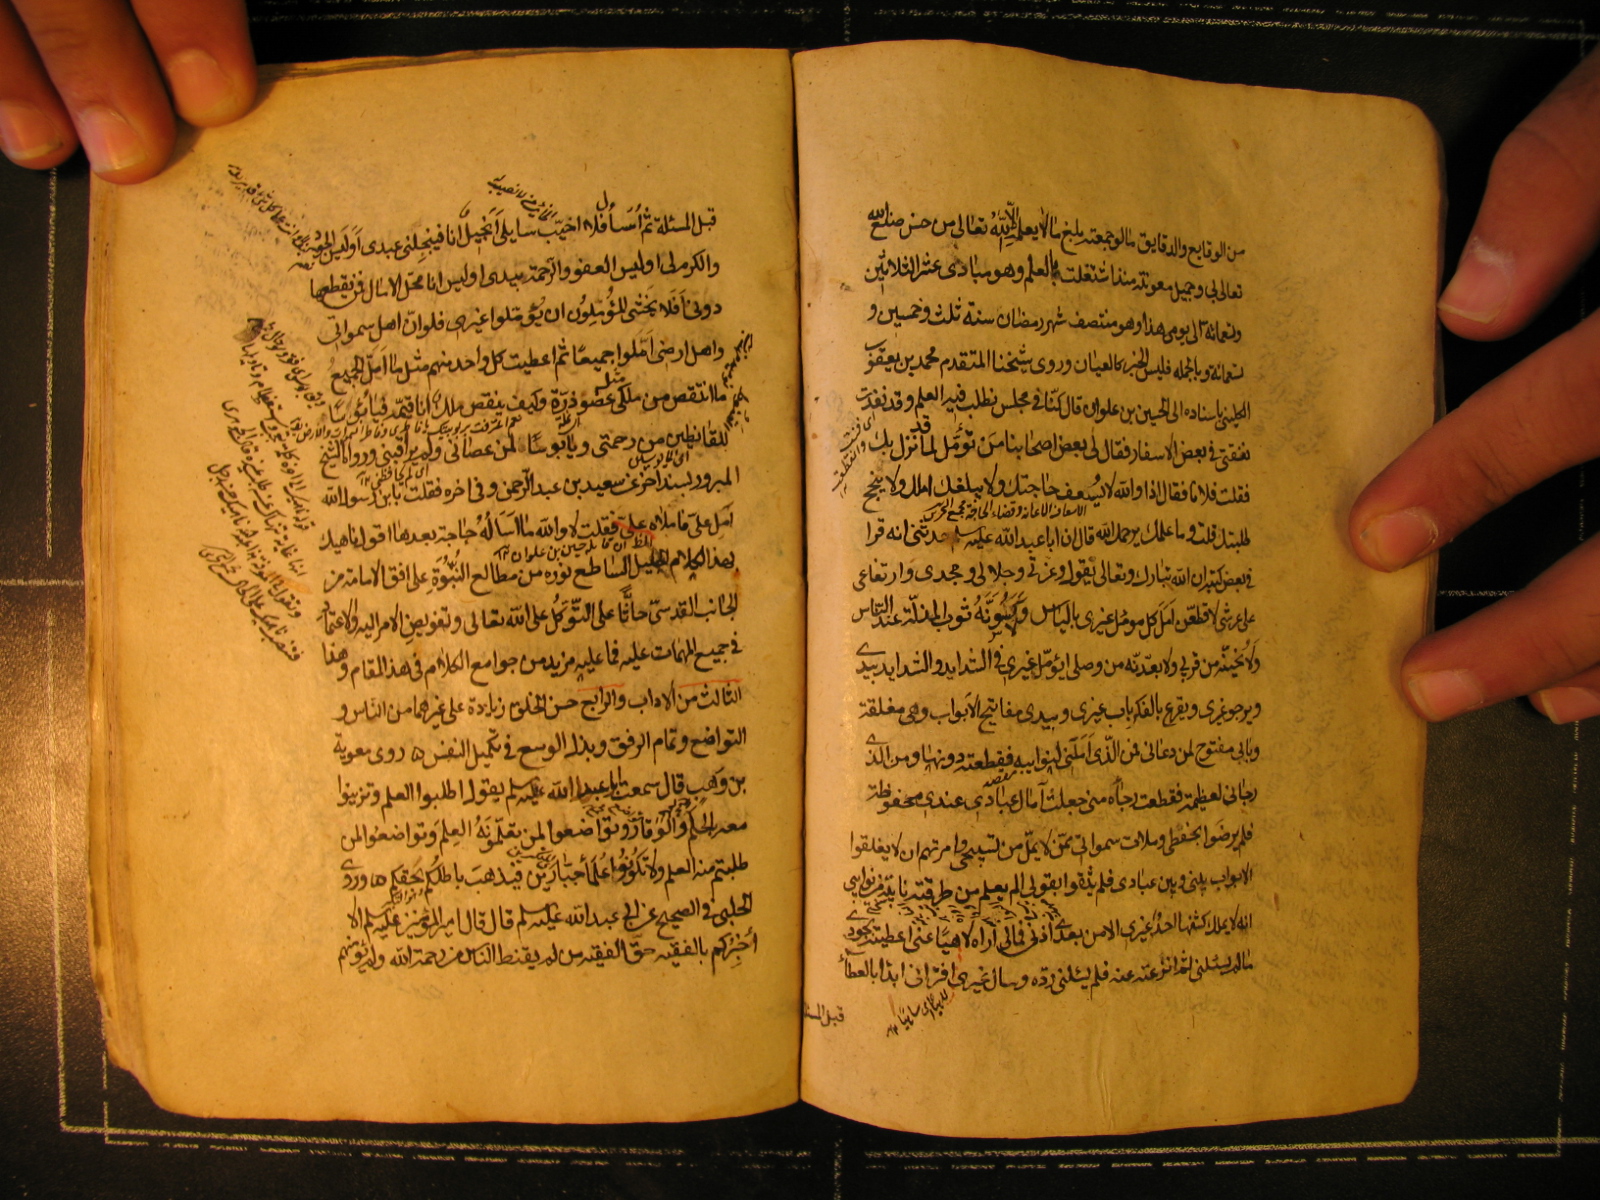 من الوقايع والدقايق ما لو جمعته بلغ ما لا يعلمه الا الله تعالى من حسن صنع الله
تعالى بي وجميل معونته منذ اشتغلت بالعلم وهو مبادى عشر الثلاثين
وتسعمائة الى يومى هذا وهو منتصف شهر رمضان سنة ثلث وخمسين و
تسعمائة وبالجملة فليس الخبر كالعيان وروى شيخنا المتقدم محمد بن يعقوب
الكلينى باسناده الى الحسين بن علوان قال كنا فى مجلس نطلب فيه العلم وقد نفدت
نفقتى فى بعض الاسفار فقال لى بعض اصحابنا من تؤمل لما قد نزل بك
فقلت فلانا فقال اذا والله لا يسعف حاجتك ولا يبلغك املك ولا ينجح
الاسعاف الاعانة وقضاء الحاجة مجمع البحرين
طلبتك قلت وما علمك يرحمك الله قال ان ابا عبدالله عليه سلم حدثنى انه قرا
فى بعض الكتب ان الله تبارك وتعالى يقول وعزتى وجلالى ومجدى وارتفاعى
على عرشى لاقطعن امل كل مومل غيرى بالياس ولاكسونه ثوب المذلة عند الناس
ولانحينه من قربى ولابعدنه من وصلى ايؤمل غيرى فى الشدايد والشدايد بيدى
ويرجو غيرى ويقرع بالفكر باب غيرى وبيدى مفاتيح الابواب وهى مغلقة
وبابى مفتوح لمن دعانى فمن الذى املنى لنوايبه فقطعته دونها ومن الذى
رجانى لعظيمة فقطعت رجاه منى جعلت آمال عبادى عندى محفوظة
فلم يرضوا بحفظى وملأت سمواتى ممن لا يمل من تسبيحى وامرتهم ان لا يغلقوا
الابواب بينى وبين عبادى فلم يثقوا بقولى الم يعلم من طرقته نايبة من نوايبى
انه لا يملك كشفها احد غيرى الا من بعد اذنى فمالى آراه لاهيا عنى اعطيته بجودى
ما لم يسئلنى ثم انتزعته عنه فلم يسئلنى رده وسال غيرى افترانى ابدا بالعطا
قبل المسئلة
قبل المسئلة ثم أسأل فلا اخيب سايلى أبخيل انا فيبخلنى عبدى اوليس الجود
والكرم لى اوليس العفو والرحمة بيدى اوليس انا محل الامال فمن يقطعها
دونى افلا يخشى المؤملون ان يؤملوا غيرى فلو ان اهل سمواتى
واهل ارضى املوا جميعا ثم اعطيت كل واحد منهم مثل ما امل الجميع
ما انتقص من ملكى مثل عضو ذرة وكيف ينقص ملك انا قيمه فيا بؤسا
للقانطين من رحمتى ويا بوسا لمن عصانى ولم يراقبنى ورواه الشيخ
المبرور بسند اخر عن سعيد بن عبد الرحمن وفى اخره فقلت يا بن رسول الله
امل على فاملاه على فقلت لا والله ما اسأله حاجة بعدها اقول ناهيك
بهذا الكلام الجليل الساطع نوره من مطالع النبوة على افق الامامة من
الجانب القدسى حاثا على التوكل على الله تعالى وتفويض الامر اليه والاعتماد
فى جميع المهمات عليه فما عليه مزيد من جوامع الكلام فى هذا المقام وهذا
الثالث من الاداب والرابع حسن الخلق زيادة على غيرهما من الناس و
التواضع وتمام الرفق وبذل الوسع فى تكميل النفس روى معوية
بن وهب قال سمعت ابا عبد الله عليه سلم يقول اطلبوا العلم وتزينوا
معه بالحلم والوقار وتواضعوا لمن تعلمونه العلم وتواضعوا لمن
طلبتم منه العلم ولا تكونوا علماء جبارين فيذهب باطلكم بحقكم وروى
الحلبى فى الصحيح عن ابى عبد الله عليه سلم قال قال امير المؤمنين عليه سلم الا
أخبركم بالفقيه حق الفقيه من لم يقنط الناس من رحمة الله ولم يؤمنهم